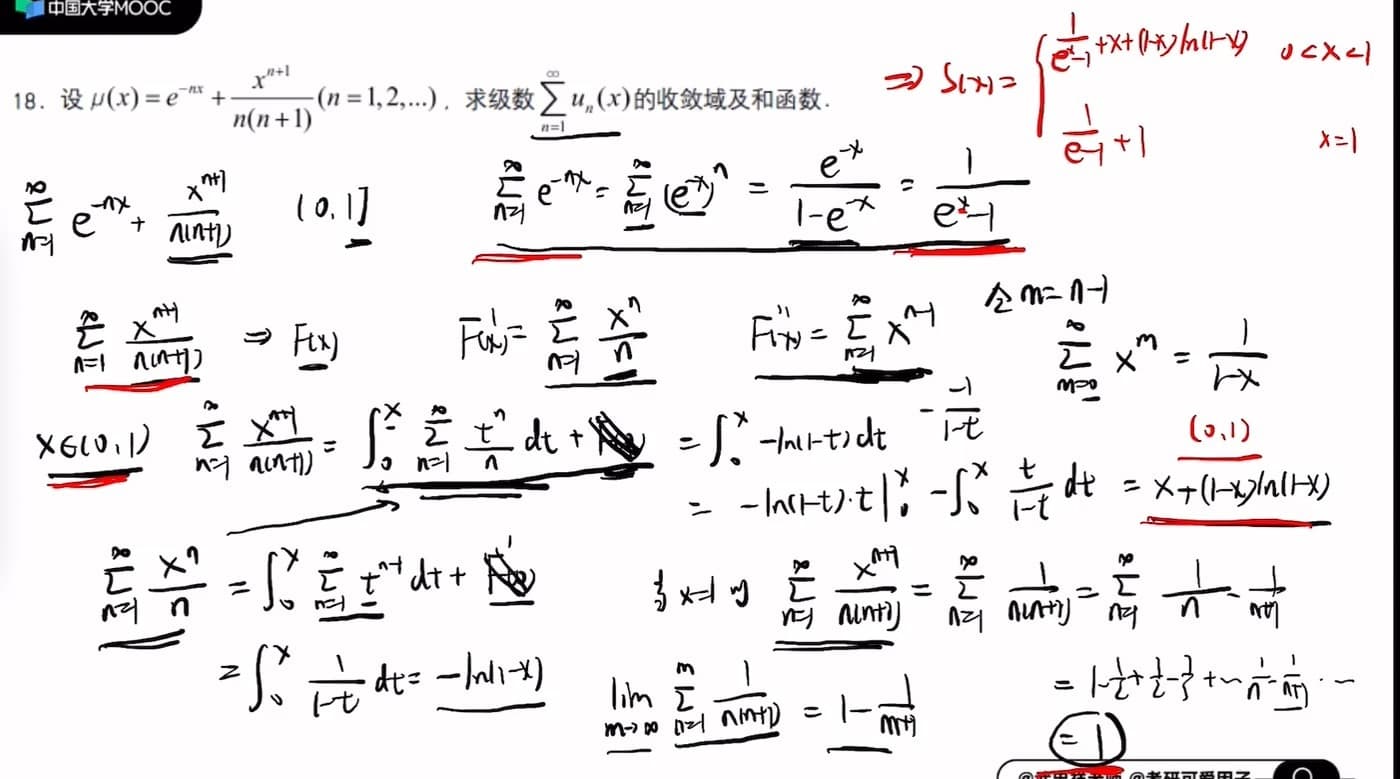 中国大学MOOC
18. 设 μ(x) = e^{-nx} + \frac{x^{n+1}}{n(n+1)} (n = 1,2,...) . 求级数 \sum_{n=1}^{∞} u_n(x) 的收敛域及和函数.
⇒ S(x) = { \frac{1}{e^x-1} + x + (1-x)ln(1-x) 0<x<1
\frac{1}{e-1} + 1 x=1
\sum_{n=1}^{∞} e^{-nx} + \frac{x^{n+1}}{n(n+1)} (0,1]
\sum_{n=1}^{∞} e^{-nx} = \sum_{n=1}^{∞} (e^{-x})^n = \frac{e^{-x}}{1-e^{-x}} = \frac{1}{e^x-1}
\sum_{n=1}^{∞} \frac{x^{n+1}}{n(n+1)} ⇒ F(x)
F'(x) = \sum_{n=1}^{∞} \frac{x^n}{n}
F''(x) = \sum_{n=1}^{∞} x^{n-1}
令 m=n-1
\sum_{m=0}^{∞} x^m = \frac{1}{1-x}
(0,1)
x∈(0,1) \sum_{n=1}^{∞} \frac{x^{n+1}}{n(n+1)} = \int_0^x \sum_{n=1}^{∞} \frac{t^n}{n} dt + = \int_0^x -ln(1-t) dt - \frac{-1}{1-t}
= -ln(1-t)·t |_0^x - \int_0^x \frac{t}{1-t} dt = x+(1-x)ln(1-x)
\sum_{n=1}^{∞} \frac{x^n}{n} = \int_0^x \sum_{n=1}^{∞} t^{n-1} dt +
= \int_0^x \frac{1}{1-t} dt = -ln(1-x)
x=1 时 \sum_{n=1}^{∞} \frac{x^{n+1}}{n(n+1)} = \sum_{n=1}^{∞} \frac{1}{n(n+1)} = \sum_{n=1}^{∞} \frac{1}{n} - \frac{1}{n+1}
= 1-\frac{1}{2}+\frac{1}{2}-\frac{1}{3}+… \frac{1}{n}-\frac{1}{n+1} …
= 1
lim_{m→∞} \sum_{n=1}^{m} \frac{1}{n(n+1)} = 1 - \frac{1}{m+1}